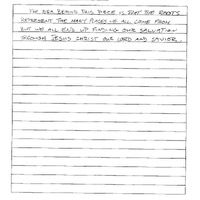 THE IDEA BEHIND THIS PIECE IS THAT THE ROOTS
REPRESENT THE MANY PLACES WE ALL COME FROM
BUT WE ALL END UP FINDING OUR SALVATION
THROUGH JESUS CHRIST OUR LORD AND SAVIOR.